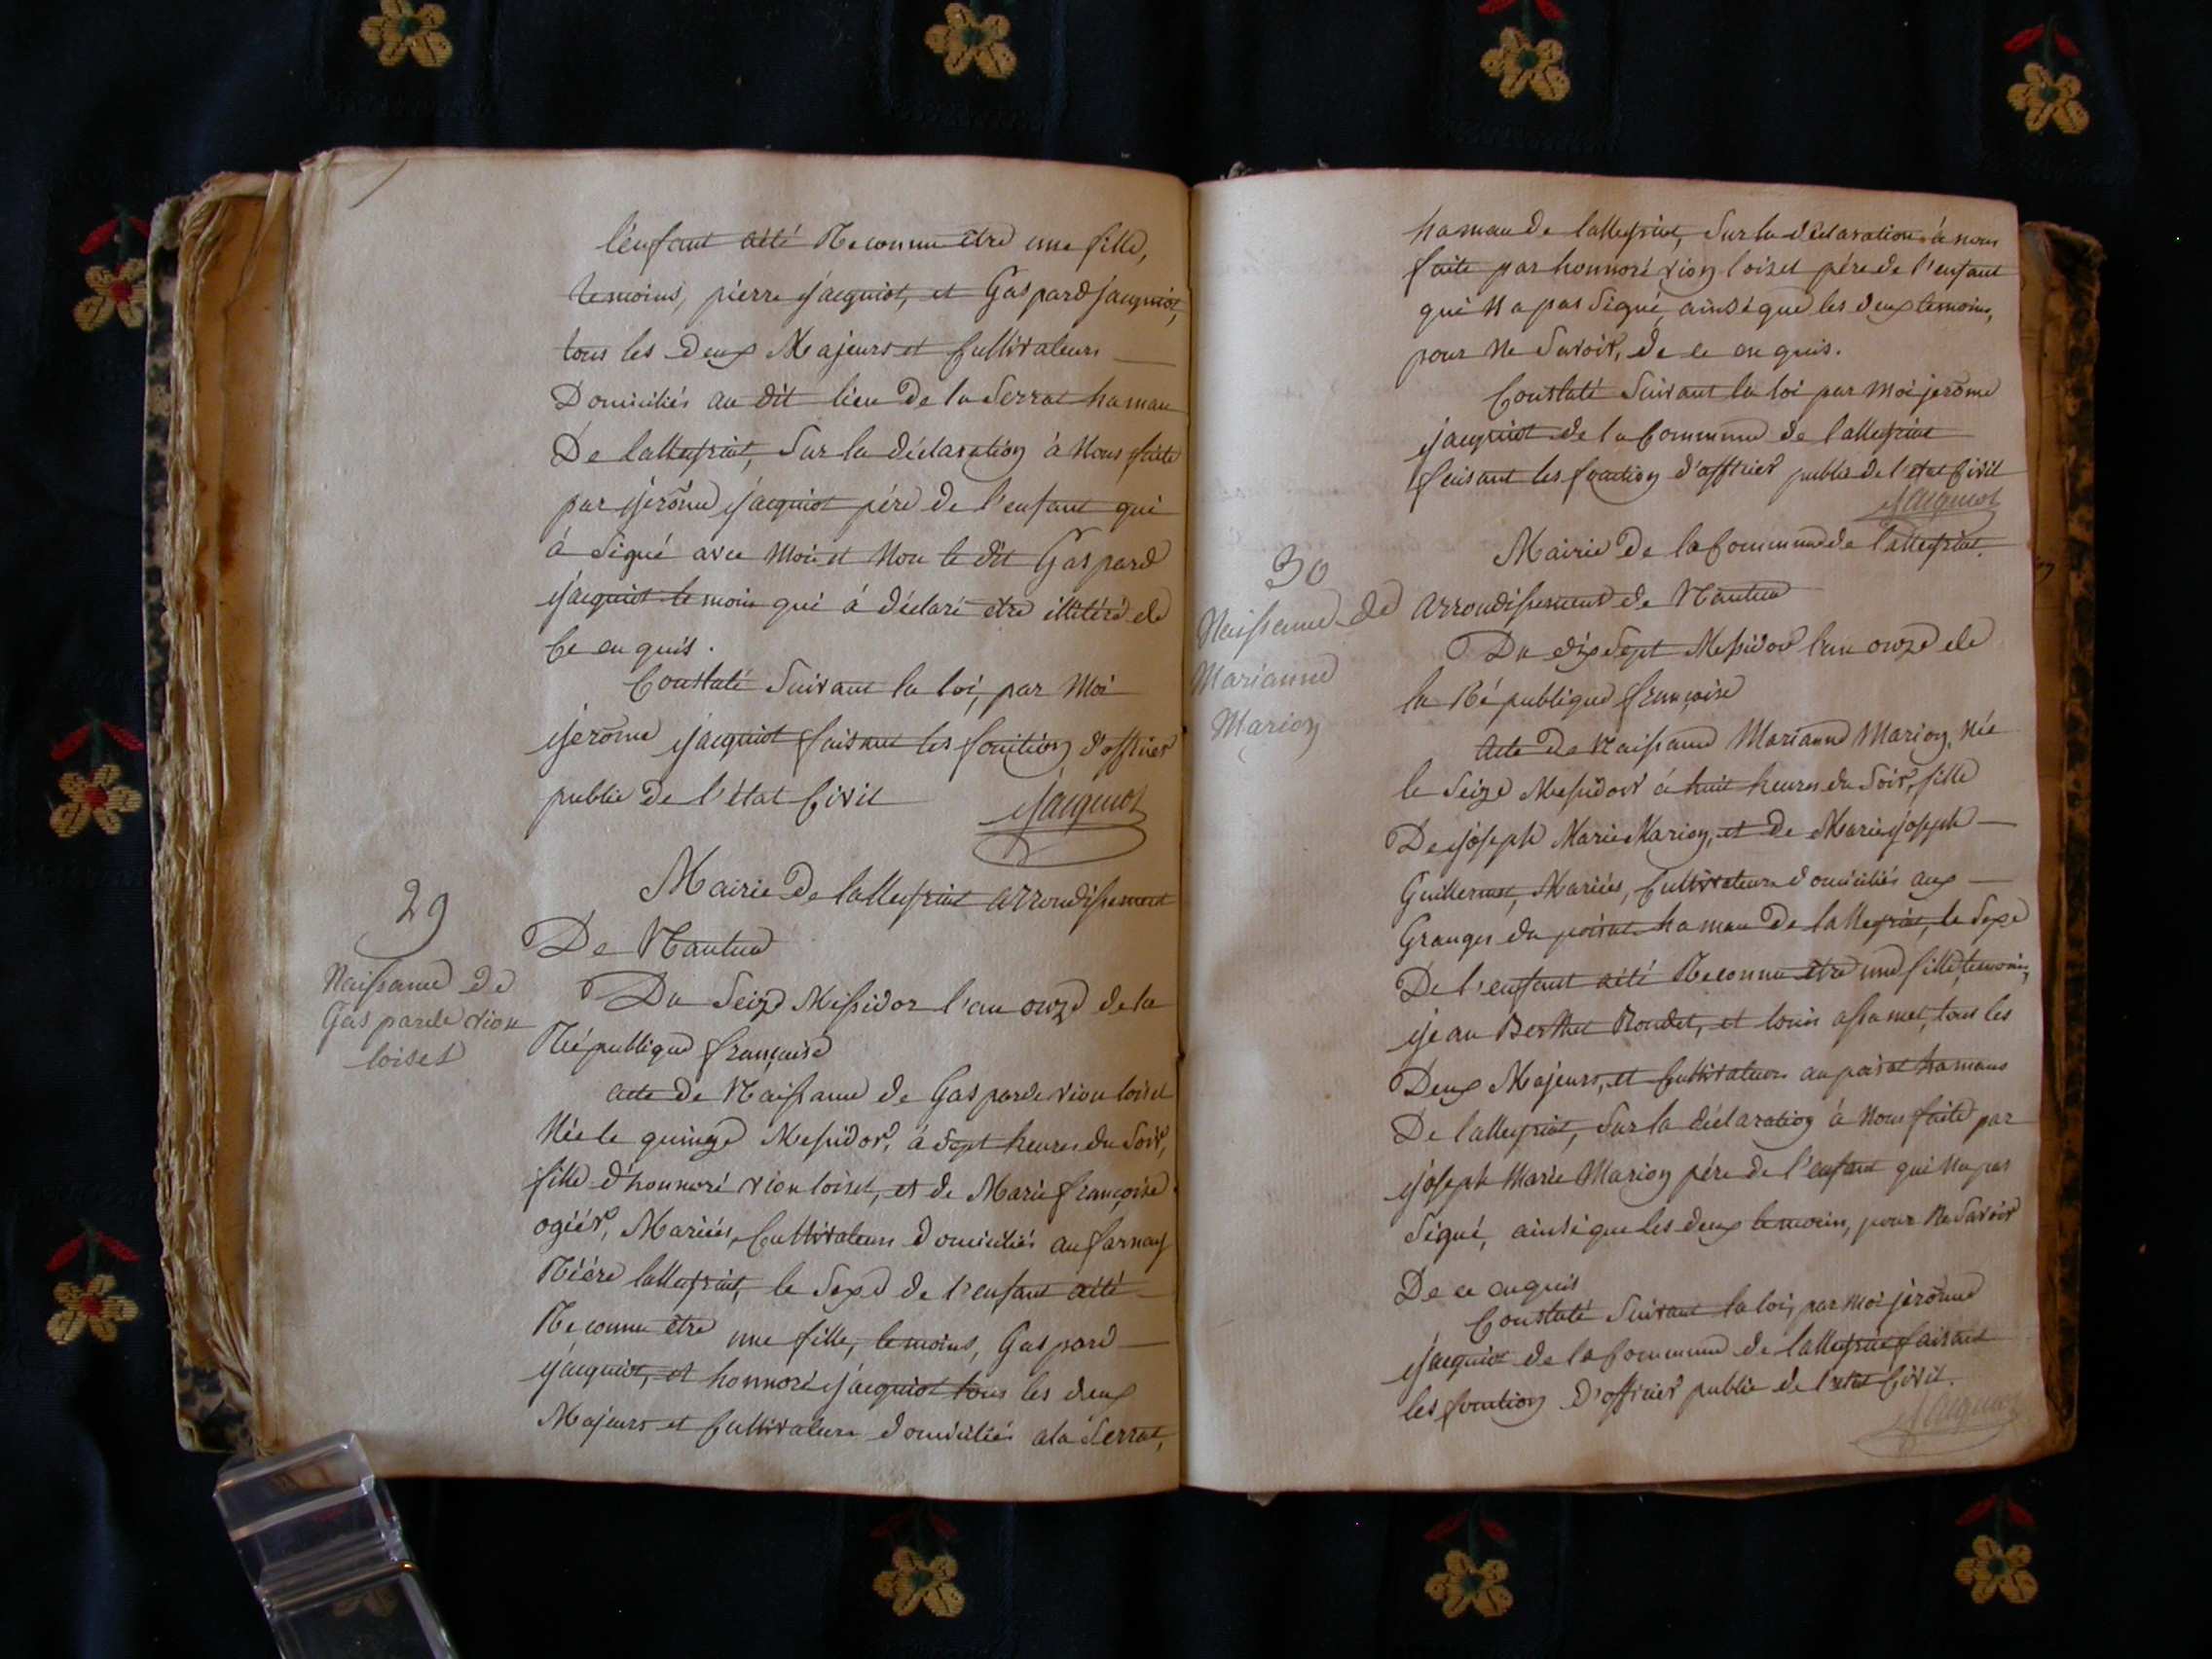 l'enfant aété Reconnu être une fille,
temoins, pierre jacquiot, et Gaspard jacquiot,
tous les deux Majeurs et Cultivateurs
Domiciliés au dit lieu de la Serrat hamau
De lalleyriat, Sur la déclaration à Nous faite
par jerôme jacquiot pére de l'enfant qui
à Signé avec Moi et Non le dit Gaspard
jacquiot temoin qui à déclaré être illitéré de
Ce enquis.
Constaté Suivant la loi, par Moi
jerôme jacquiot faisant les fonction d'officier
public de l'état Civil
jacquiot
29
Naissance de
Gasparde vion
loiset
Mairie De lalleyriat arrondissement
De Nantua
Du Seize Messidor l'an onze de la
République françaisse
acte de Naissance de Gasparde vion loiset
Née le quinze Messidor, à Sept heures du Soir,
fille d'honnoré vion loiset, et de Marie françoise
ogiér, Mariées, Cultivateurs domiciliés au farnay
Riére lalleyriat, le Sexe de l'enfant aété
Reconnu être une fille, temoins, Gaspard
jacquiot, et honnoré jacquiot tous les deux
Majeurs et Cultivateurs domiciliés ala Serrat,
hamau De lalleyriat, Sur la déclaration à nous
faite par honnoré vion loiset pére de l'enfant
qui N a pas Signé, ainsi que les deux temoins,
pour Ne Savoir, de ce enquis.
Constaté Suivant la loi par Moi jerôme
jacquiot de la Commune de lalleyriat
faisant les fonction d'officier public de l'etat Civil
jacquiot
30
Naissance de
Marianne
Marion
Mairie De la Commune de lalleyriat.
arrondissement de Nantua
Du dix Sept Messidor l'an onze de
la République françoise
acte De Naissance Marianne Marion, Née
le Seize Messidor à huit heures du Soir, fille
De joseph Marie Marion, et de Marie joseph
Guillermet, Mariées, Cultivateurs domiciliés aux
Granges du poizat hamau De lalleyriat, le Sexe
De l'enfant aété Reconnu être une fille, temoins,
jean Berthet Rondet, et louis assamet, tous les
Deux Majeurs, et Cultivateurs au poizat hamaus
De lalleyriat, Sur la déclaration à Nous faite par
joseph Marie Marion pére de l'enfant qui Na pas
Signé, ainsi que les deux temoins, pour Ne Savoir
De ce enquis
Constaté Suivant la loi, par Moi jerôme
jacquiot de la Commune de lalleyriat faisant
les fonction D'officier public de l'etat Civil.
jacquiot